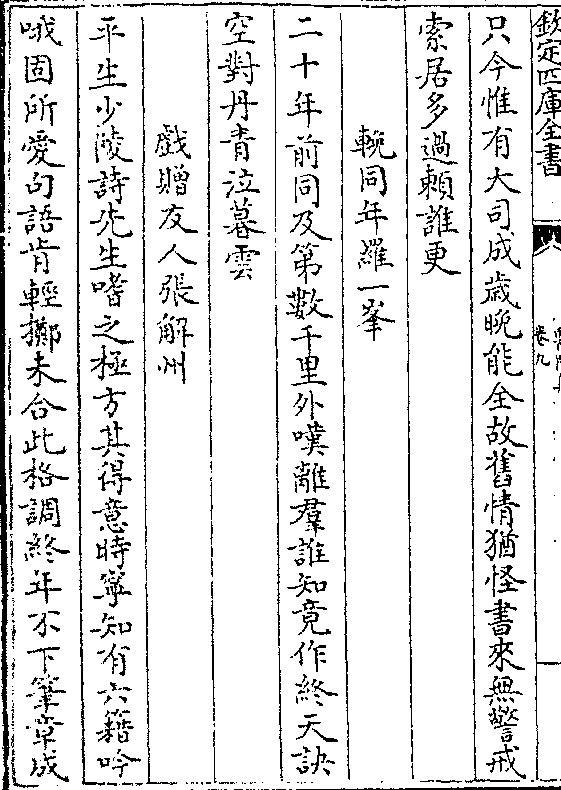 欽定四庫全書
卷九
只今惟有大司成歲晚能全故舊情猶怪書來無警戒
索居多過賴誰更
輓同年羅一峯
二十年前同及第數千里外嘆離羣誰知竟作終天訣
空對丹青泣暮雲
戲贈友人張解州
平生少陵詩先生嗜之極方其得意時寧知有六籍吟
哦固所愛句語肯輕擲未合此格調終年不下筆章成